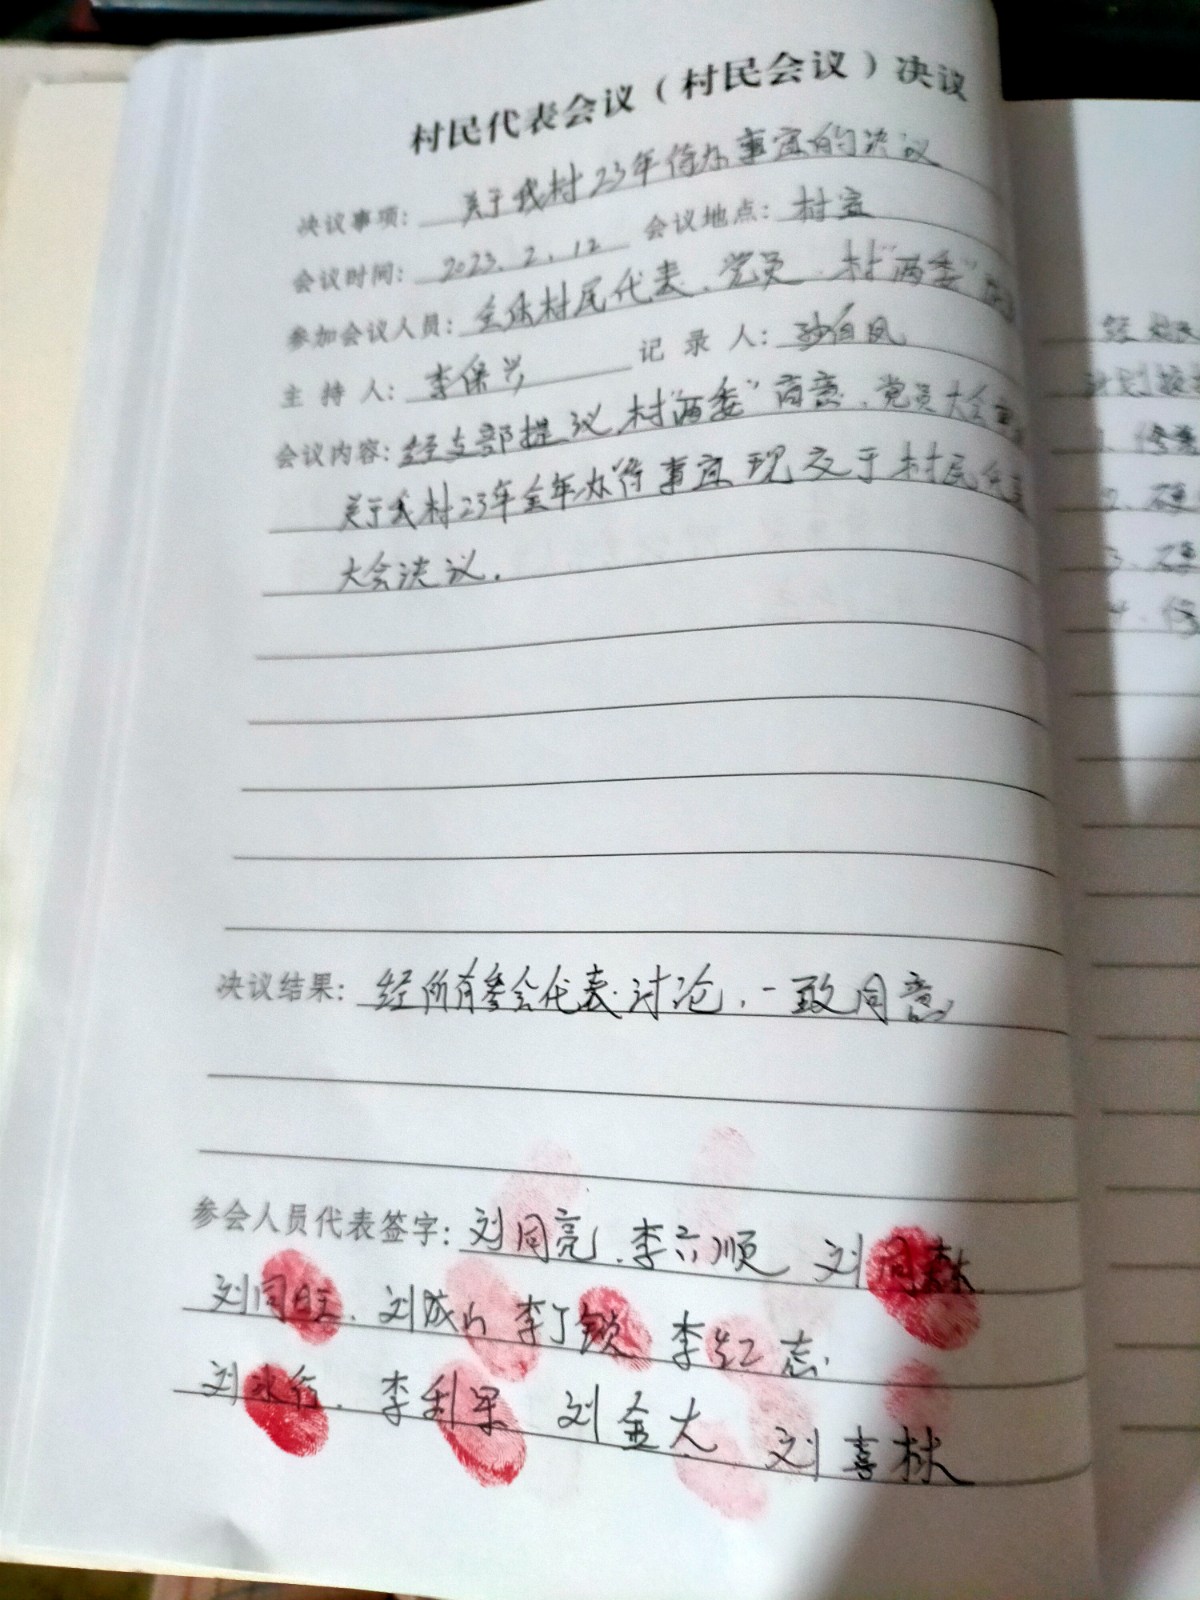 村民代表会议（村民会议）决议
决议事项：关于我村23年待办事宜的决议
会议时间：2023.2.12 会议地点：村室
参加会议人员：全体村民代表、党员、村“两委”
主持人：李保兴 记录人：孙自凤
会议内容：经支部提议，村“两委”商意、党员大会
关于我村23年全年办待事宜现交于村民代表
大会决议．
决议结果：经所有参会代表讨论，一致同意
参会人员代表签字：刘同亮、李六顺 刘同森
刘同旺、刘成山 李丁锁 李红志
刘水行、李利军 刘金大 刘喜林
计划
1.修
2.硬
3.硬
4.修